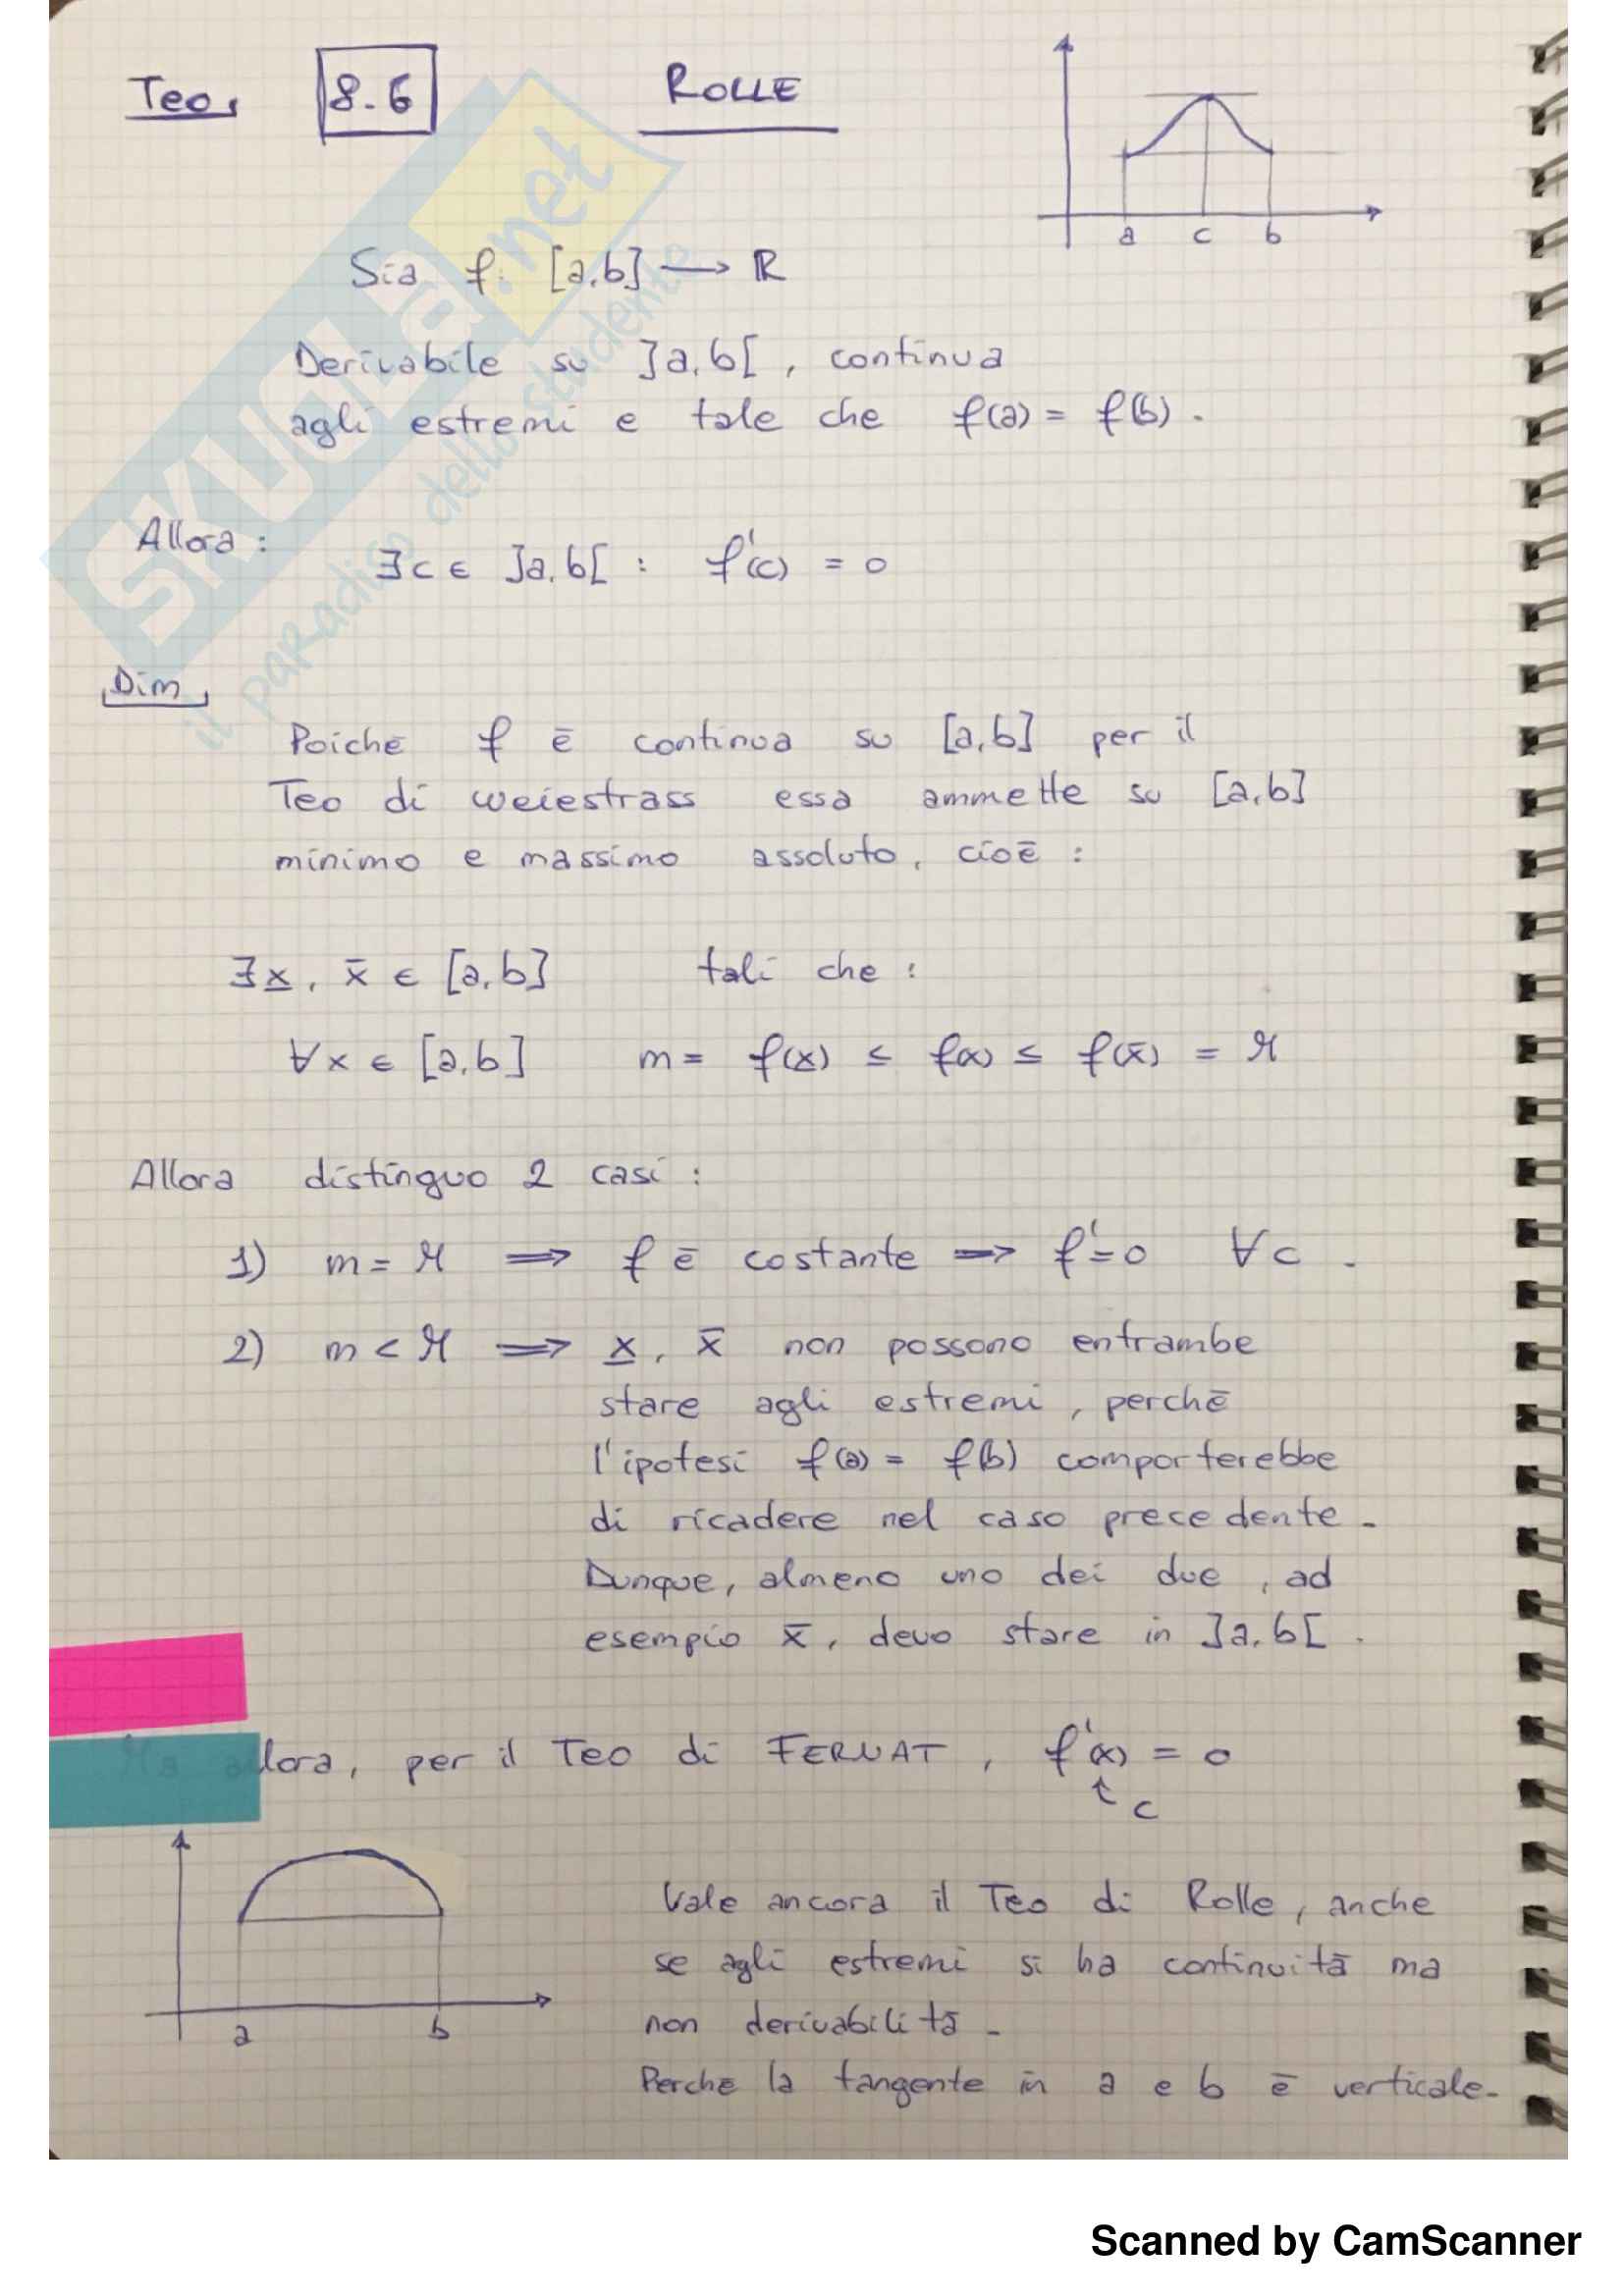 Teo.
8.6
ROLLE
a c b
Sia f: [a,b] → ℝ
Derivabile su ]a,b[ , continua
agli estremi e tale che f(a) = f(b).
Allora :
∃ c ∈ ]a,b[ : f'(c) = 0
Dim
Poichē f ē continua su [a,b] per il
Teo di weiestrass essa ammette su [a,b]
minimo e massimo assoluto, cioē :
∃ x̲, x̄ ∈ [a,b] tali che :
∀ x ∈ [a,b] m = f(x̲) ≤ f(x) ≤ f(x̄) = M
Allora distinguo 2 casi :
1) m = M ⟹ f ē costante ⟹ f' = 0 ∀ c .
2) m < M ⟹ x̲, x̄ non possono entrambe
stare agli estremi, perchē
l'ipotesi f(a) = f(b) comporterebbe
di ricadere nel caso precedente.
Dunque, almeno uno dei due, ad
esempio x̄, devo stare in ]a,b[ .
Ma allora, per il Teo di FERMAT, f'(x) = 0
↑ c
a b
Vale ancora il Teo di Rolle, anche
se agli estremi si ha continuitā ma
non derivabilitā.
Perchē la tangente in a e b ē verticale.
SKUOLA.net
il paradiso dello studente
Scanned by CamScanner